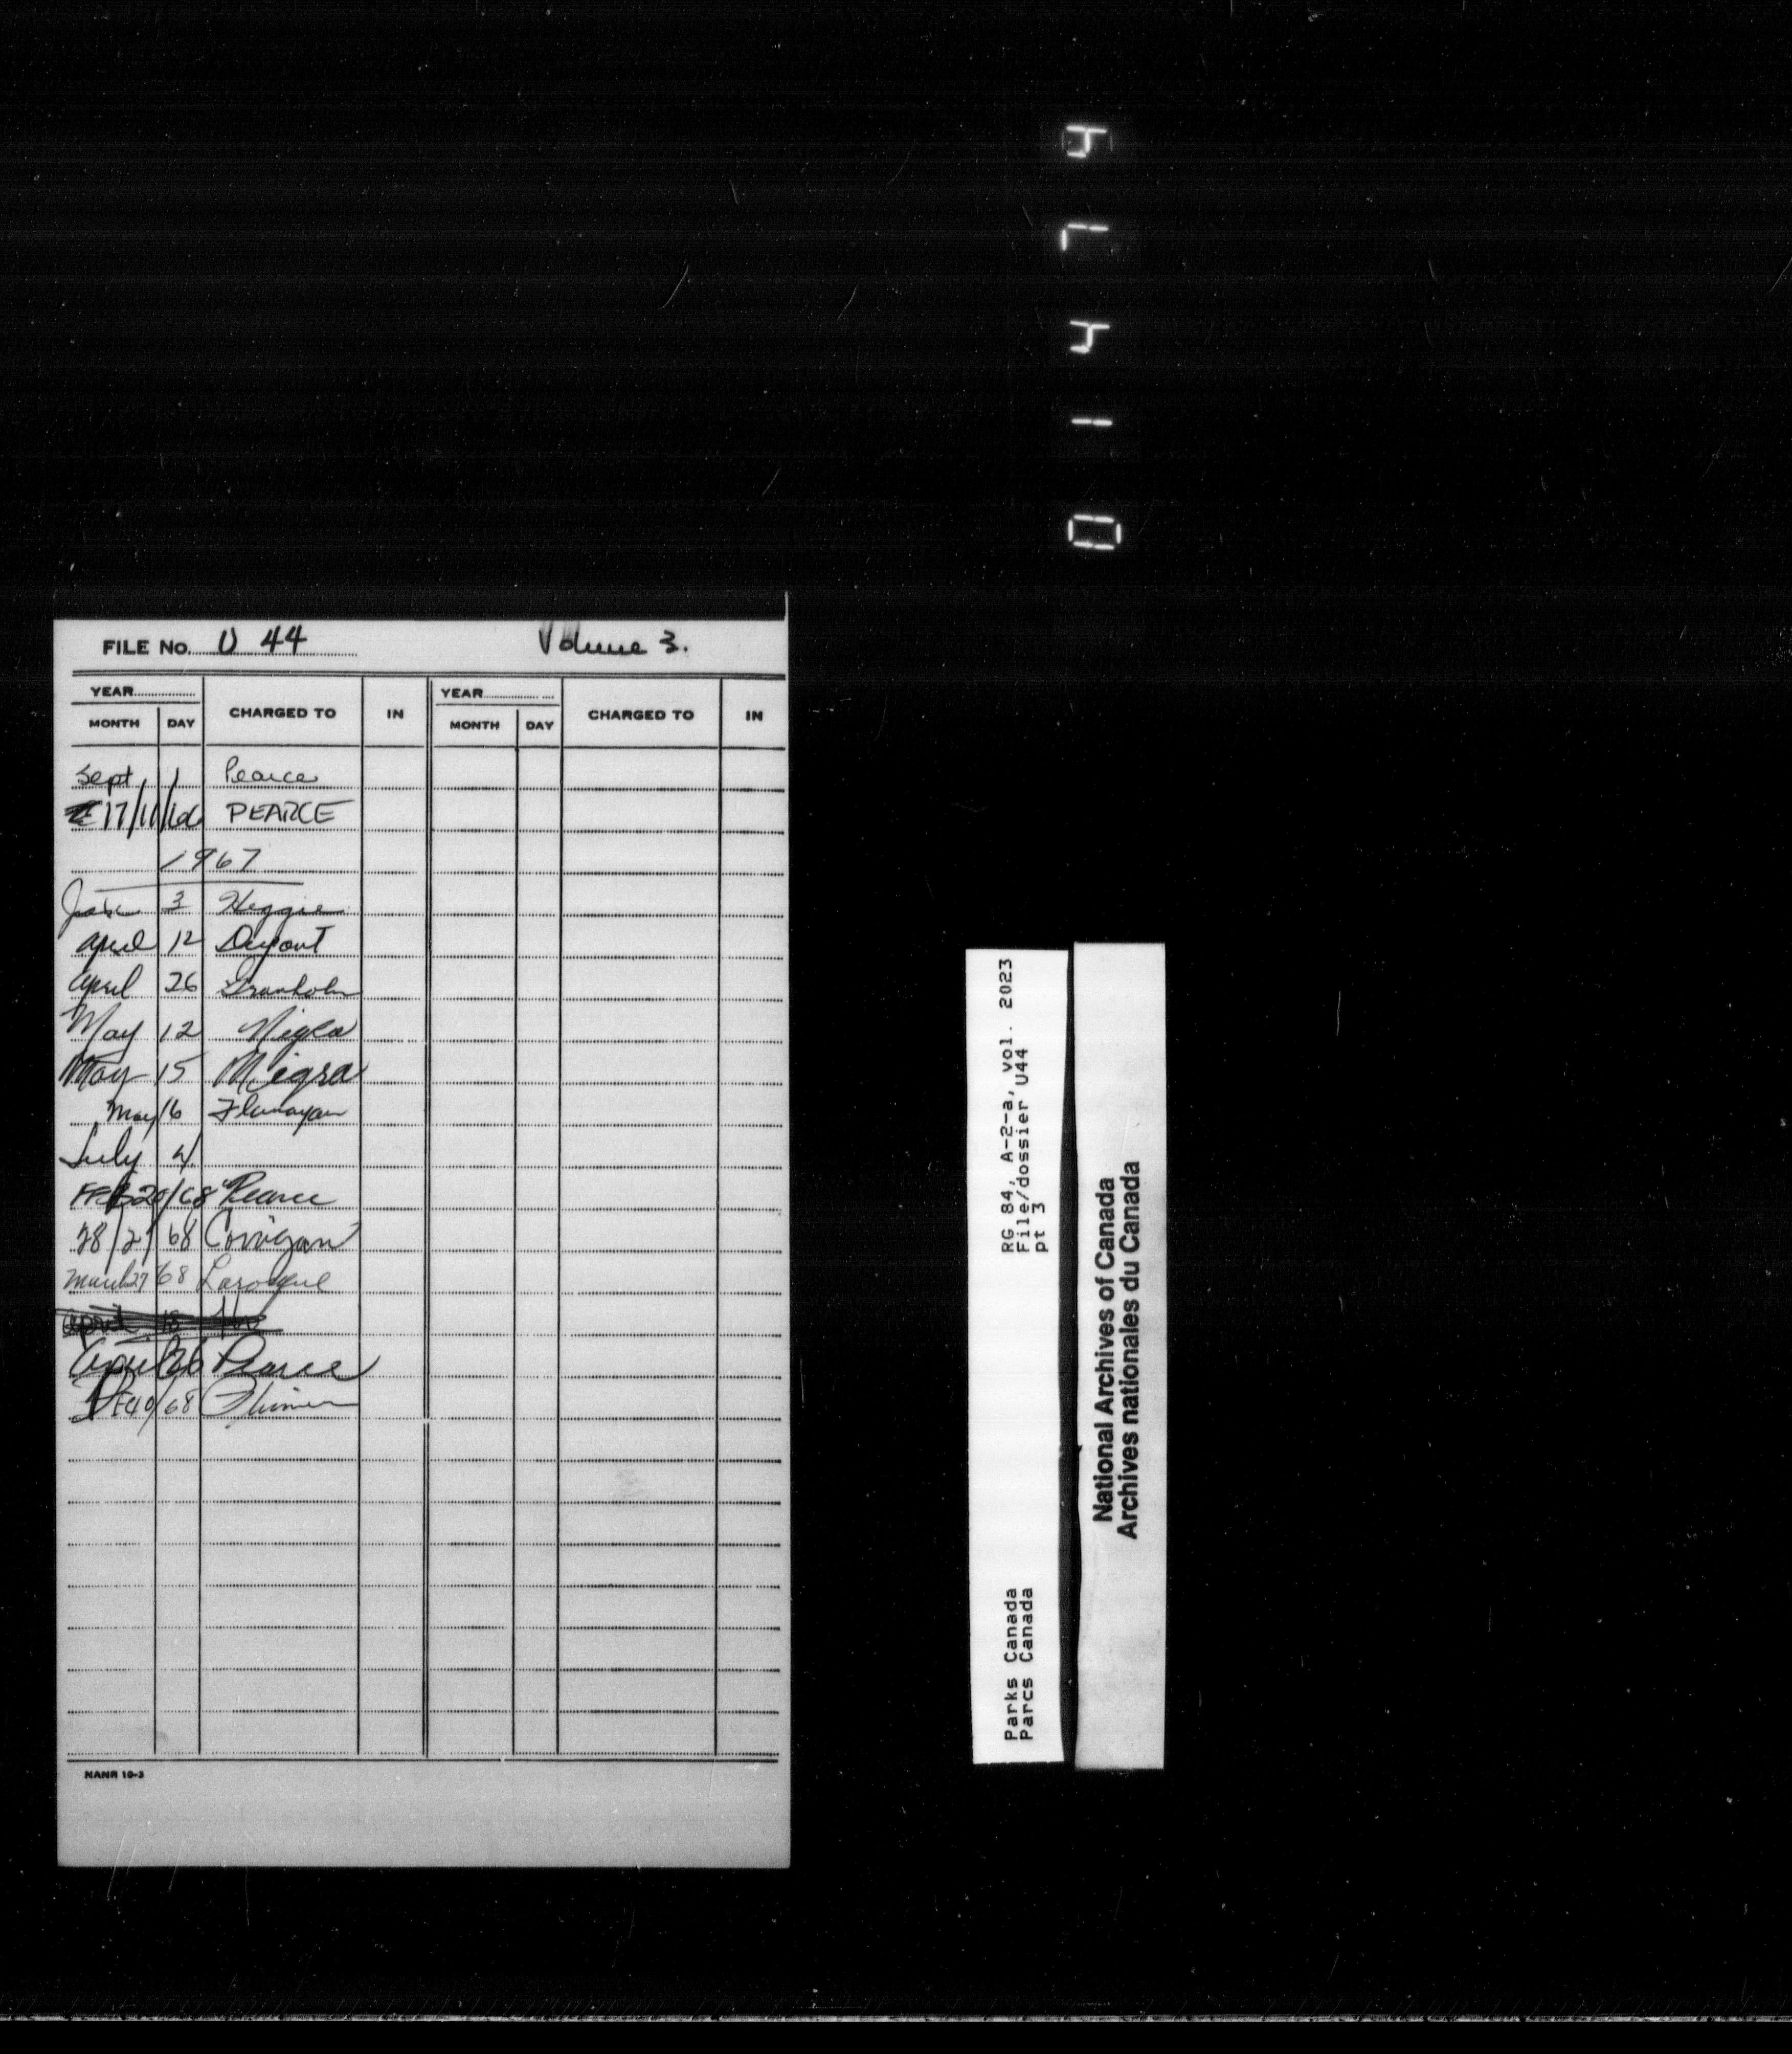 FILE No. U 44 Volume 3.
YEAR YEAR
MONTH DAY CHARGED TO IN MONTH DAY CHARGED TO IN
Sept 1 Pearce
17/11/66 PEARCE
1967
3 Heggie
April 12 Dupont
April 26 Granholm
May 12 Nigra
May 15 Nigra
May 16 Flanagan
July 4
FEB 20/68 Pearce
28/2/68 Corrigan
March 27/68 Larocque
April 18
April 26 Pearce
/68
NANR 10-3
RG 84, A-2-a, vol. 2023
File/dossier U44
pt 3
Parks Canada
Parcs Canada
National Archives of Canada
Archives nationales du Canada